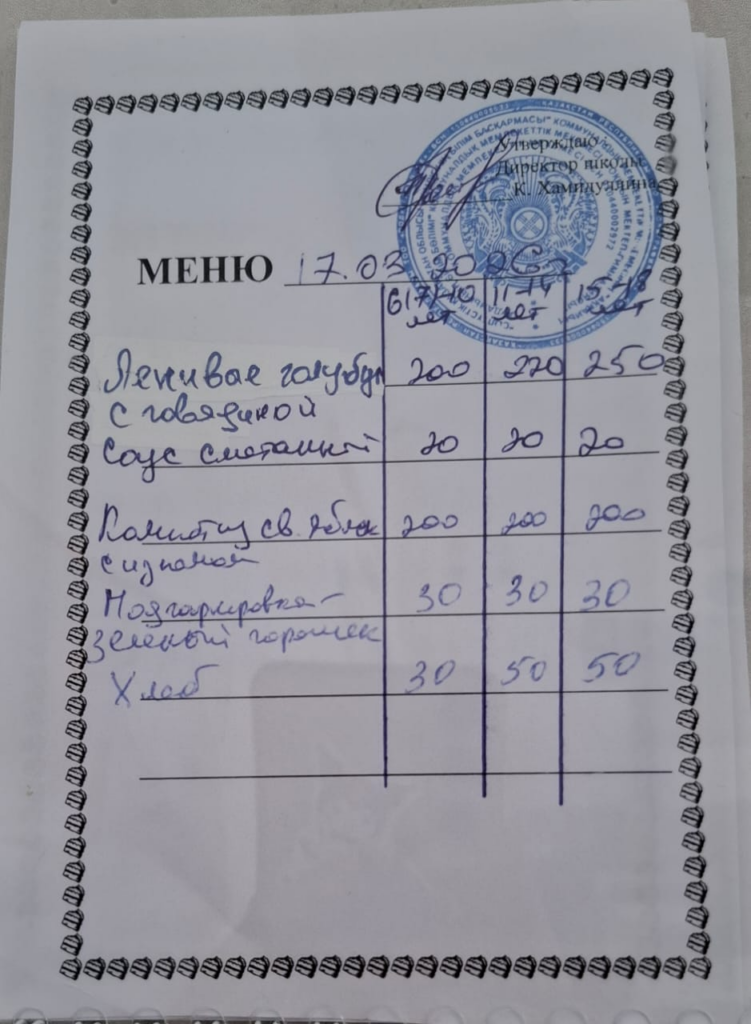 Утверждаю
Директор школы
К. Хамидуллина
МЕНЮ 17.03 2026г
6(7)-10 лет 11-14 лет 15-18 лет
Ленивые голубцы 200 220 250
с говядиной
Соус сметанный 20 20 20
Компот из св. яблок 200 200 200
с изюмом
Подгарнировка- 30 30 30
зеленый горошек
Хлеб 30 50 50